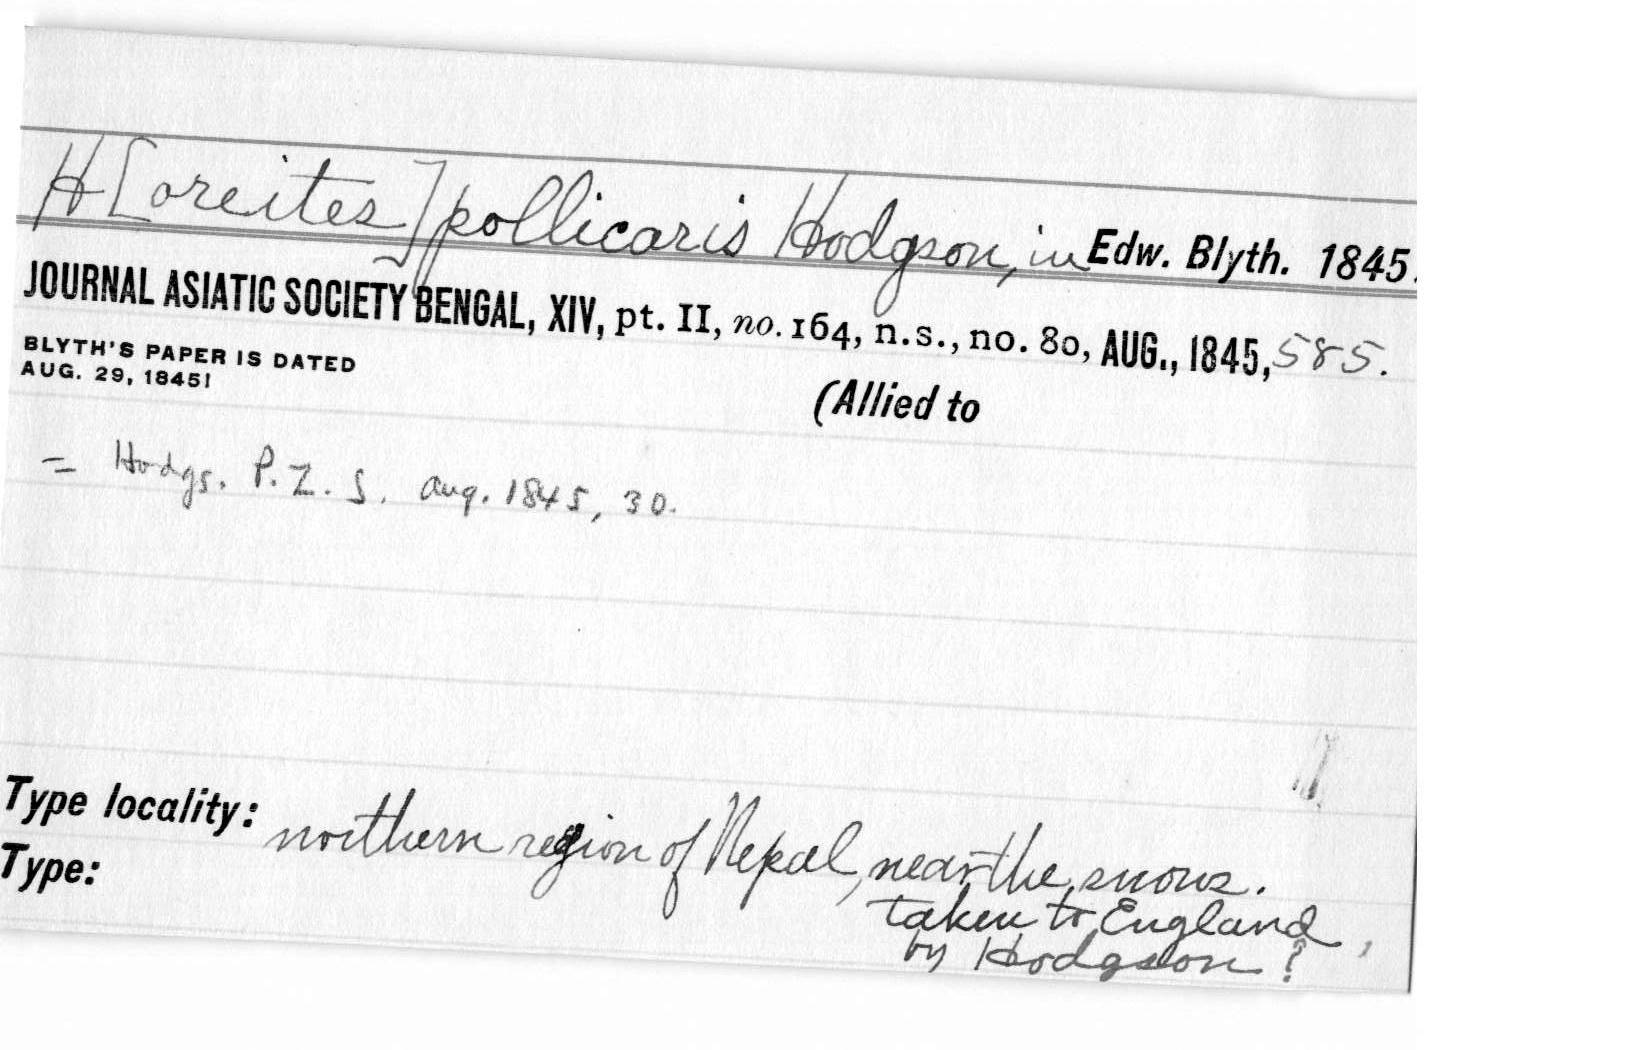 H[oreites] pollicaris Hodgson, in Edw. Blyth. 1845.
JOURNAL ASIATIC SOCIETY BENGAL, XIV, pt. II, no. 164, n.s., no. 80, AUG., 1845, 585.
BLYTH'S PAPER IS DATED
AUG. 29, 1845!
(Allied to
= Hodgs. P.Z.S. Aug. 1845, 30.
Type locality: northern region of Nepal, near the snows.
Type: taken to England,
by Hodgson?